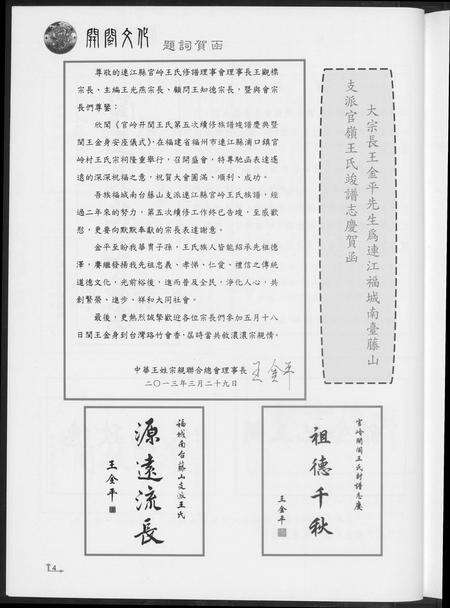 開閩文化
題詞賀函
大宗長王金平先生為連江福城南臺藤山
支派官嶺王氏竣譜志慶賀函
尊敬的連江縣官岭王氏修譜理事會理事長王觀標
宗長、主編王光燕宗長、顧問王知德宗長，暨與會宗
長們尊鑒：
欣聞《官岭开閩王氏第五次續修族譜竣譜慶典暨
閩王金身安座儀式》在福建省福州市連江縣浦口鎮官
岭村王氏宗祠隆重舉行，召開盛會，特專馳函表達遙
遠的深深祝福之意，祝賀大會圓滿、順利、成功。
吾族福城南台藤山支派連江縣官岭王氏族譜，經
過二年來的努力，第五次續修工作終已告竣，至感歡
慰，更要向默默奉獻的宗長表達謝意。
金平至盼我華胄子孫，王氏族人皆能紹承先祖德
澤，賡繼發揚我先祖忠義、孝悌、仁愛、禮信之傳統
道德文化，光前裕後，進而普及全民，淨化人心，共
創繁榮、進步、祥和大同社會。
最後，更熱烈誠摯歡迎各位宗長們參加五月十八
日閩王金身到台灣路竹會香，屆時當共敘濃濃宗親情。
中華王姓宗親聯合總會理事長 王金平
二〇一三年三月二十九日
官岭開閩王氏封譜志慶
祖德千秋
王金平
福城南台藤山支派王氏
源遠流長
王金平
14